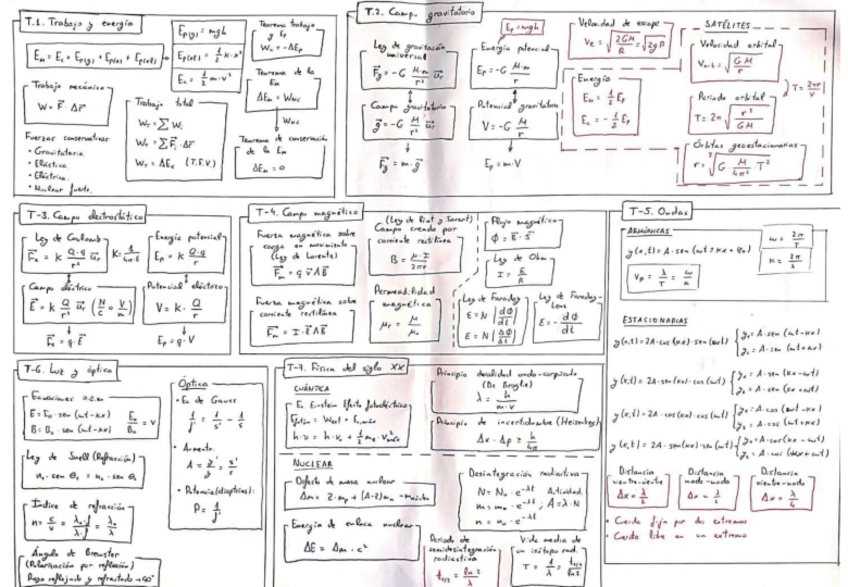 T.1. Trabajo y energía
E_m = E_c + E_p(g) + E_p(e) + E_p(el)
E_p(g) = mgh
E_p(el) = 1/2 k·x²
E_c = 1/2 m·v²
Teorema trabajo
y E_p
W_c = -ΔE_p
Teorema de la
E_m
ΔE_m = W_NC
W_NC
Teorema de conservación
de la E_m
ΔE_m = 0
Trabajo mecánico
W = F · Δr
Trabajo total
W_T = ΣW_i
W_T = ΣF_i · Δr
W_T = ΔE_c (T.F.V.)
Fuerzas conservativas
• Gravitatoria
• Elástica
• Eléctrica
• Nuclear fuerte
T.2. Campo gravitatorio
Ley de gravitación
universal
F_g = -G M·m/r² u_r
Campo gravitatorio
g = -G M/r² u_r
F_g = m·g
E_p = mgh
Energía potencial
E_p = -G M·m/r
Potencial gravitatorio
V = -G M/r
E_p = m·V
Velocidad de escape
v_e = √(2GM/R) = √(2gR)
Energía
E_m = 1/2 E_p
E_c = -1/2 E_p
SATÉLITES
Velocidad orbital
V_orb = √(GM/r)
Periodo orbital
T = 2π √(r³/GM)
T = 2πr/V
Órbitas geoestacionarias
r = ³√(G M/4π² T²)
T-3. Campo electrostático
Ley de Coulomb
F_e = K Q·q/r² u_r
K = 1/4π·ε
Campo eléctrico
E = K Q/r² u_r (N/C = V/m)
F_e = q·E
Energía potencial
E_p = K Q·q/r
Potencial eléctrico
V = K· Q/r
E_p = q·V
T-4. Campo magnético
Fuerza magnética sobre
carga en movimiento
(Ley de Lorentz)
F_m = q v Λ B
Fuerza magnética sobre
corriente rectilínea
F_m = I·ℓ Λ B
(Ley de Biot y Savart)
Campo creado por
corriente rectilínea
B = μ·I/2πr
Permeabilidad
magnética
μ_r = μ/μ₀
Flujo magnético
Φ = B·S
Ley de Ohm
I = ε/R
Ley de Faraday
ε = N |dΦ/dt|
ε = N |ΔΦ/Δt|
Ley de Faraday-
Lenz
ε = - dΦ/dt
T-5. Ondas
ARMÓNICAS
y(x,t) = A·sen(ωt ± kx + φ₀)
v_p = λ/T = ω/k
ω = 2π/T
k = 2π/λ
ESTACIONARIAS
y(x,t) = 2A·cos(kx)·sen(ωt) { y₁ = A·sen(ωt-kx)
y₂ = A·sen(ωt+kx)
y(x,t) = 2A·sen(kx)·cos(ωt) { y₁ = A·sen(kx-ωt)
y₂ = A·sen(kx+ωt)
y(x,t) = 2A·cos(kx)·cos(ωt) { y₁ = A·cos(ωt-kx)
y₂ = A·cos(ωt+kx)
y(x,t) = 2A·sen(kx)·sen(ωt) { y₁ = A·cos(kx-ωt)
y₂ = A·cos(kx+ωt)
Distancia
vientre-vientre
Δx = λ/2
Distancia
nodo-nodo
Δx = λ/2
Distancia
vientre-nodo
Δx = λ/4
• Cuerda fija por dos extremos
• Cuerda libre en un extremo
T-6. Luz y óptica
Ecuaciones o.e.m
E = E₀·sen(ωt-kx)
B = B₀·sen(ωt-kx)
E₀/B₀ = v
Ley de Snell (Refracción)
n₁·sen θ₁ = n₂·sen θ₂
Índice de refracción
n = c/v = λ₀·f/λ·f = λ₀/λ
Ángulo de Brewster
(Polarización por reflexión)
Rayo reflejado y refractado → 90°
Óptica
• Ec de Gauss
1/f' = 1/s' - 1/s
• Aumento
A = y'/y = s'/s
• Potencia (dioptrías):
P = 1/f'
T-7. Física del siglo XX
CUÁNTICA
Ec. Einstein Efecto fotoeléctrico
h·ν = h·ν₀ + 1/2 m_e·V²máx
Principio dualidad onda-corpúsculo
(De Broglie)
λ = h/m·v
Principio de incertidumbre (Heisenberg)
Δx · Δp ≥ h/4π
NUCLEAR
Defecto de masa nuclear
Δm = Z·m_p + (A-Z)m_n - m_núcleo
Energía de enlace nuclear
ΔE = Δm · c²
Desintegración radiactiva
N = N₀·e^-λt
m = m₀·e^-λt
n = n₀·e^-λt
Actividad
; A = λ·N
Periodo de
semidesintegración
radiactiva
t₁/₂ = ln 2/λ
Vida media de
un isótopo rad.
T = 1/λ = t₁/₂/ln2